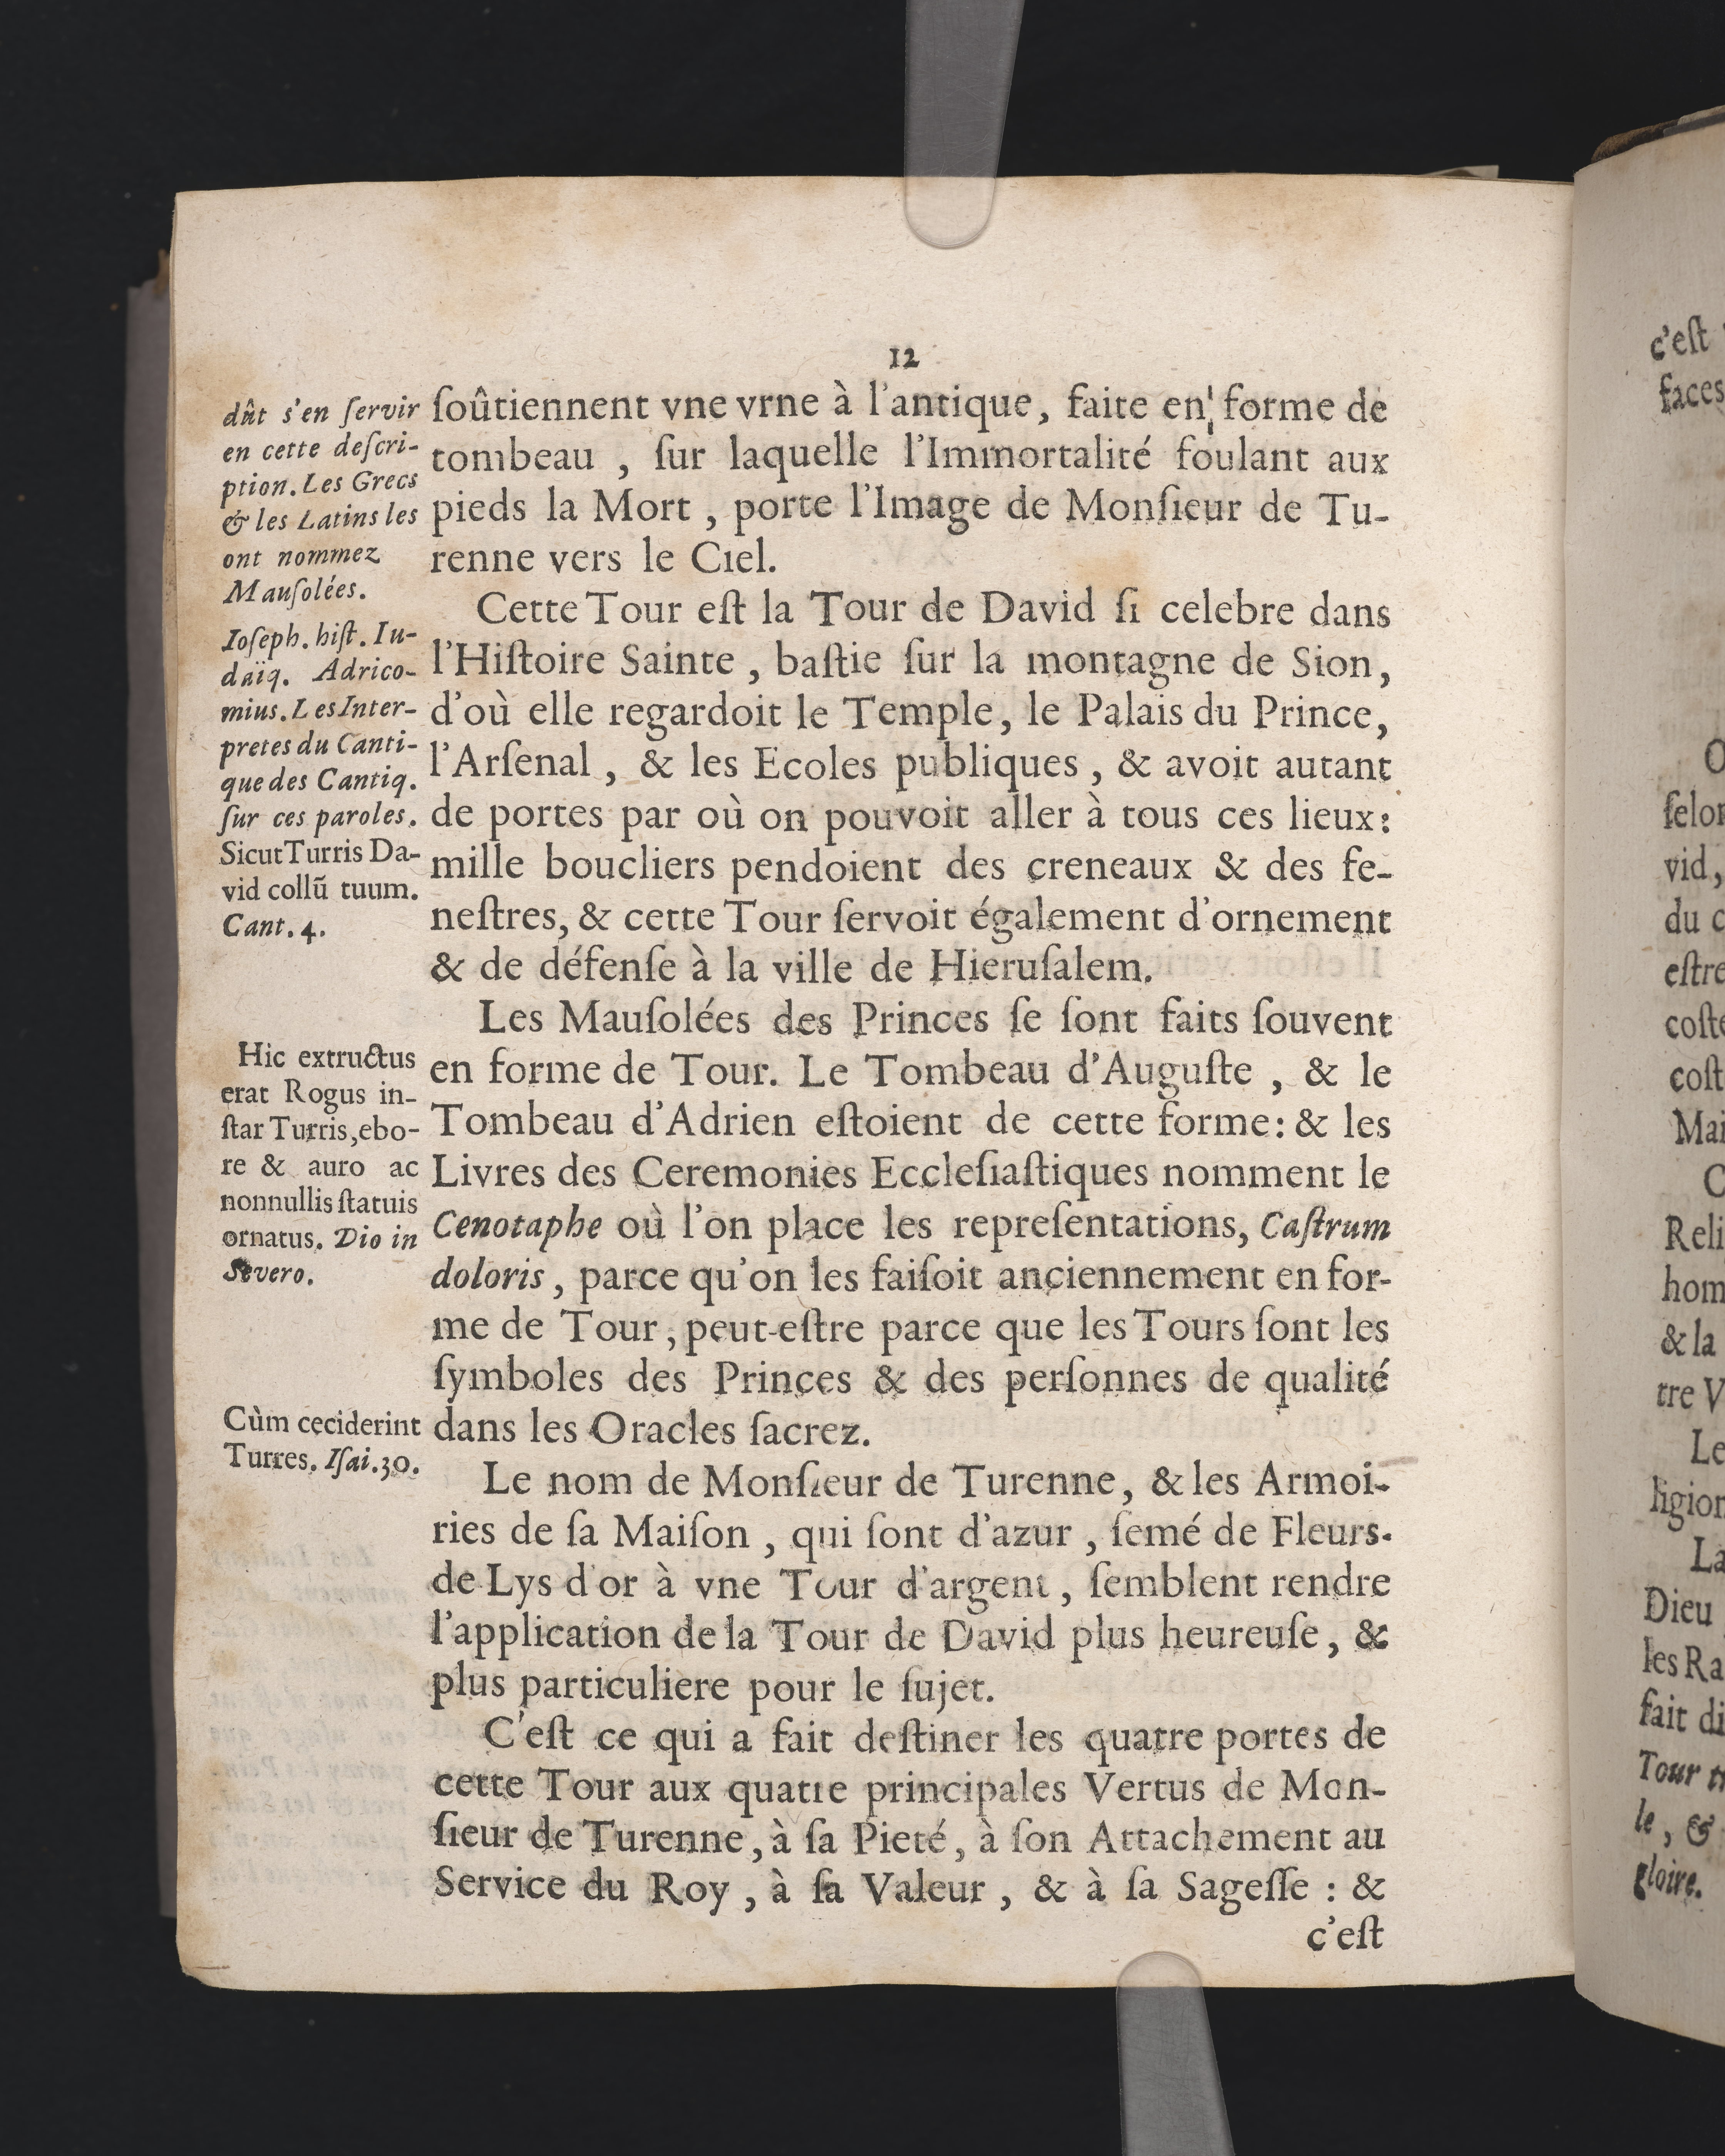 12
dût s'en ſervir
en cette deſcri-
ption. Les Grecs
& les Latins les
ont nommez
Mauſolées.
Ioſeph. hiſt. Iu-
daïq. Adrico-
mius. Les Inter-
pretes du Canti-
que des Cantiq.
ſur ces paroles.
Sicut Turris Da-
vid collũ tuum.
Cant. 4.
Hic extructus
erat Rogus in-
ſtar Turris, ebo-
re & auro ac
nonnullis ſtatuis
ornatus. Dio in
Severo.
Cùm ceciderint
Turres. Iſai. 30.
ſoûtiennent vne vrne à l'antique, faite en forme de
tombeau , ſur laquelle l'Immortalité foulant aux
pieds la Mort , porte l'Image de Monſieur de Tu-
renne vers le Ciel.
Cette Tour eſt la Tour de David ſi celebre dans
l'Hiſtoire Sainte , baſtie ſur la montagne de Sion,
d'où elle regardoit le Temple, le Palais du Prince,
l'Arſenal , & les Ecoles publiques , & avoit autant
de portes par où on pouvoit aller à tous ces lieux:
mille boucliers pendoient des creneaux & des fe-
neſtres, & cette Tour ſervoit également d'ornement
& de défenſe à la ville de Hieruſalem.
Les Mauſolées des Princes ſe ſont faits ſouvent
en forme de Tour. Le Tombeau d'Auguſte , & le
Tombeau d'Adrien eſtoient de cette forme: & les
Livres des Ceremonies Eccleſiaſtiques nomment le
Cenotaphe où l'on place les repreſentations, Caſtrum
doloris , parce qu'on les faiſoit anciennement en for-
me de Tour, peut-eſtre parce que les Tours ſont les
ſymboles des Princes & des perſonnes de qualité
dans les Oracles ſacrez.
Le nom de Monſieur de Turenne, & les Armoi-
ries de ſa Maiſon , qui ſont d'azur , ſemé de Fleurs-
de Lys d'or à vne Tour d'argent , ſemblent rendre
l'application de la Tour de David plus heureuſe, &
plus particuliere pour le ſujet.
C'eſt ce qui a fait deſtiner les quatre portes de
cette Tour aux quatre principales Vertus de Mon-
ſieur de Turenne, à ſa Pieté, à ſon Attachement au
Service du Roy , à ſa Valeur , & à ſa Sageſſe : &
c'eſt
c'eſt
faces
vid,
du
eſtre
&la
tre V
Le
La
Dieu
les Ra
fait
Tour
le, &
gloire.